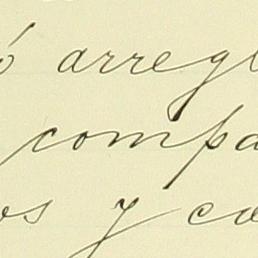 ó arregl
compa
os y co